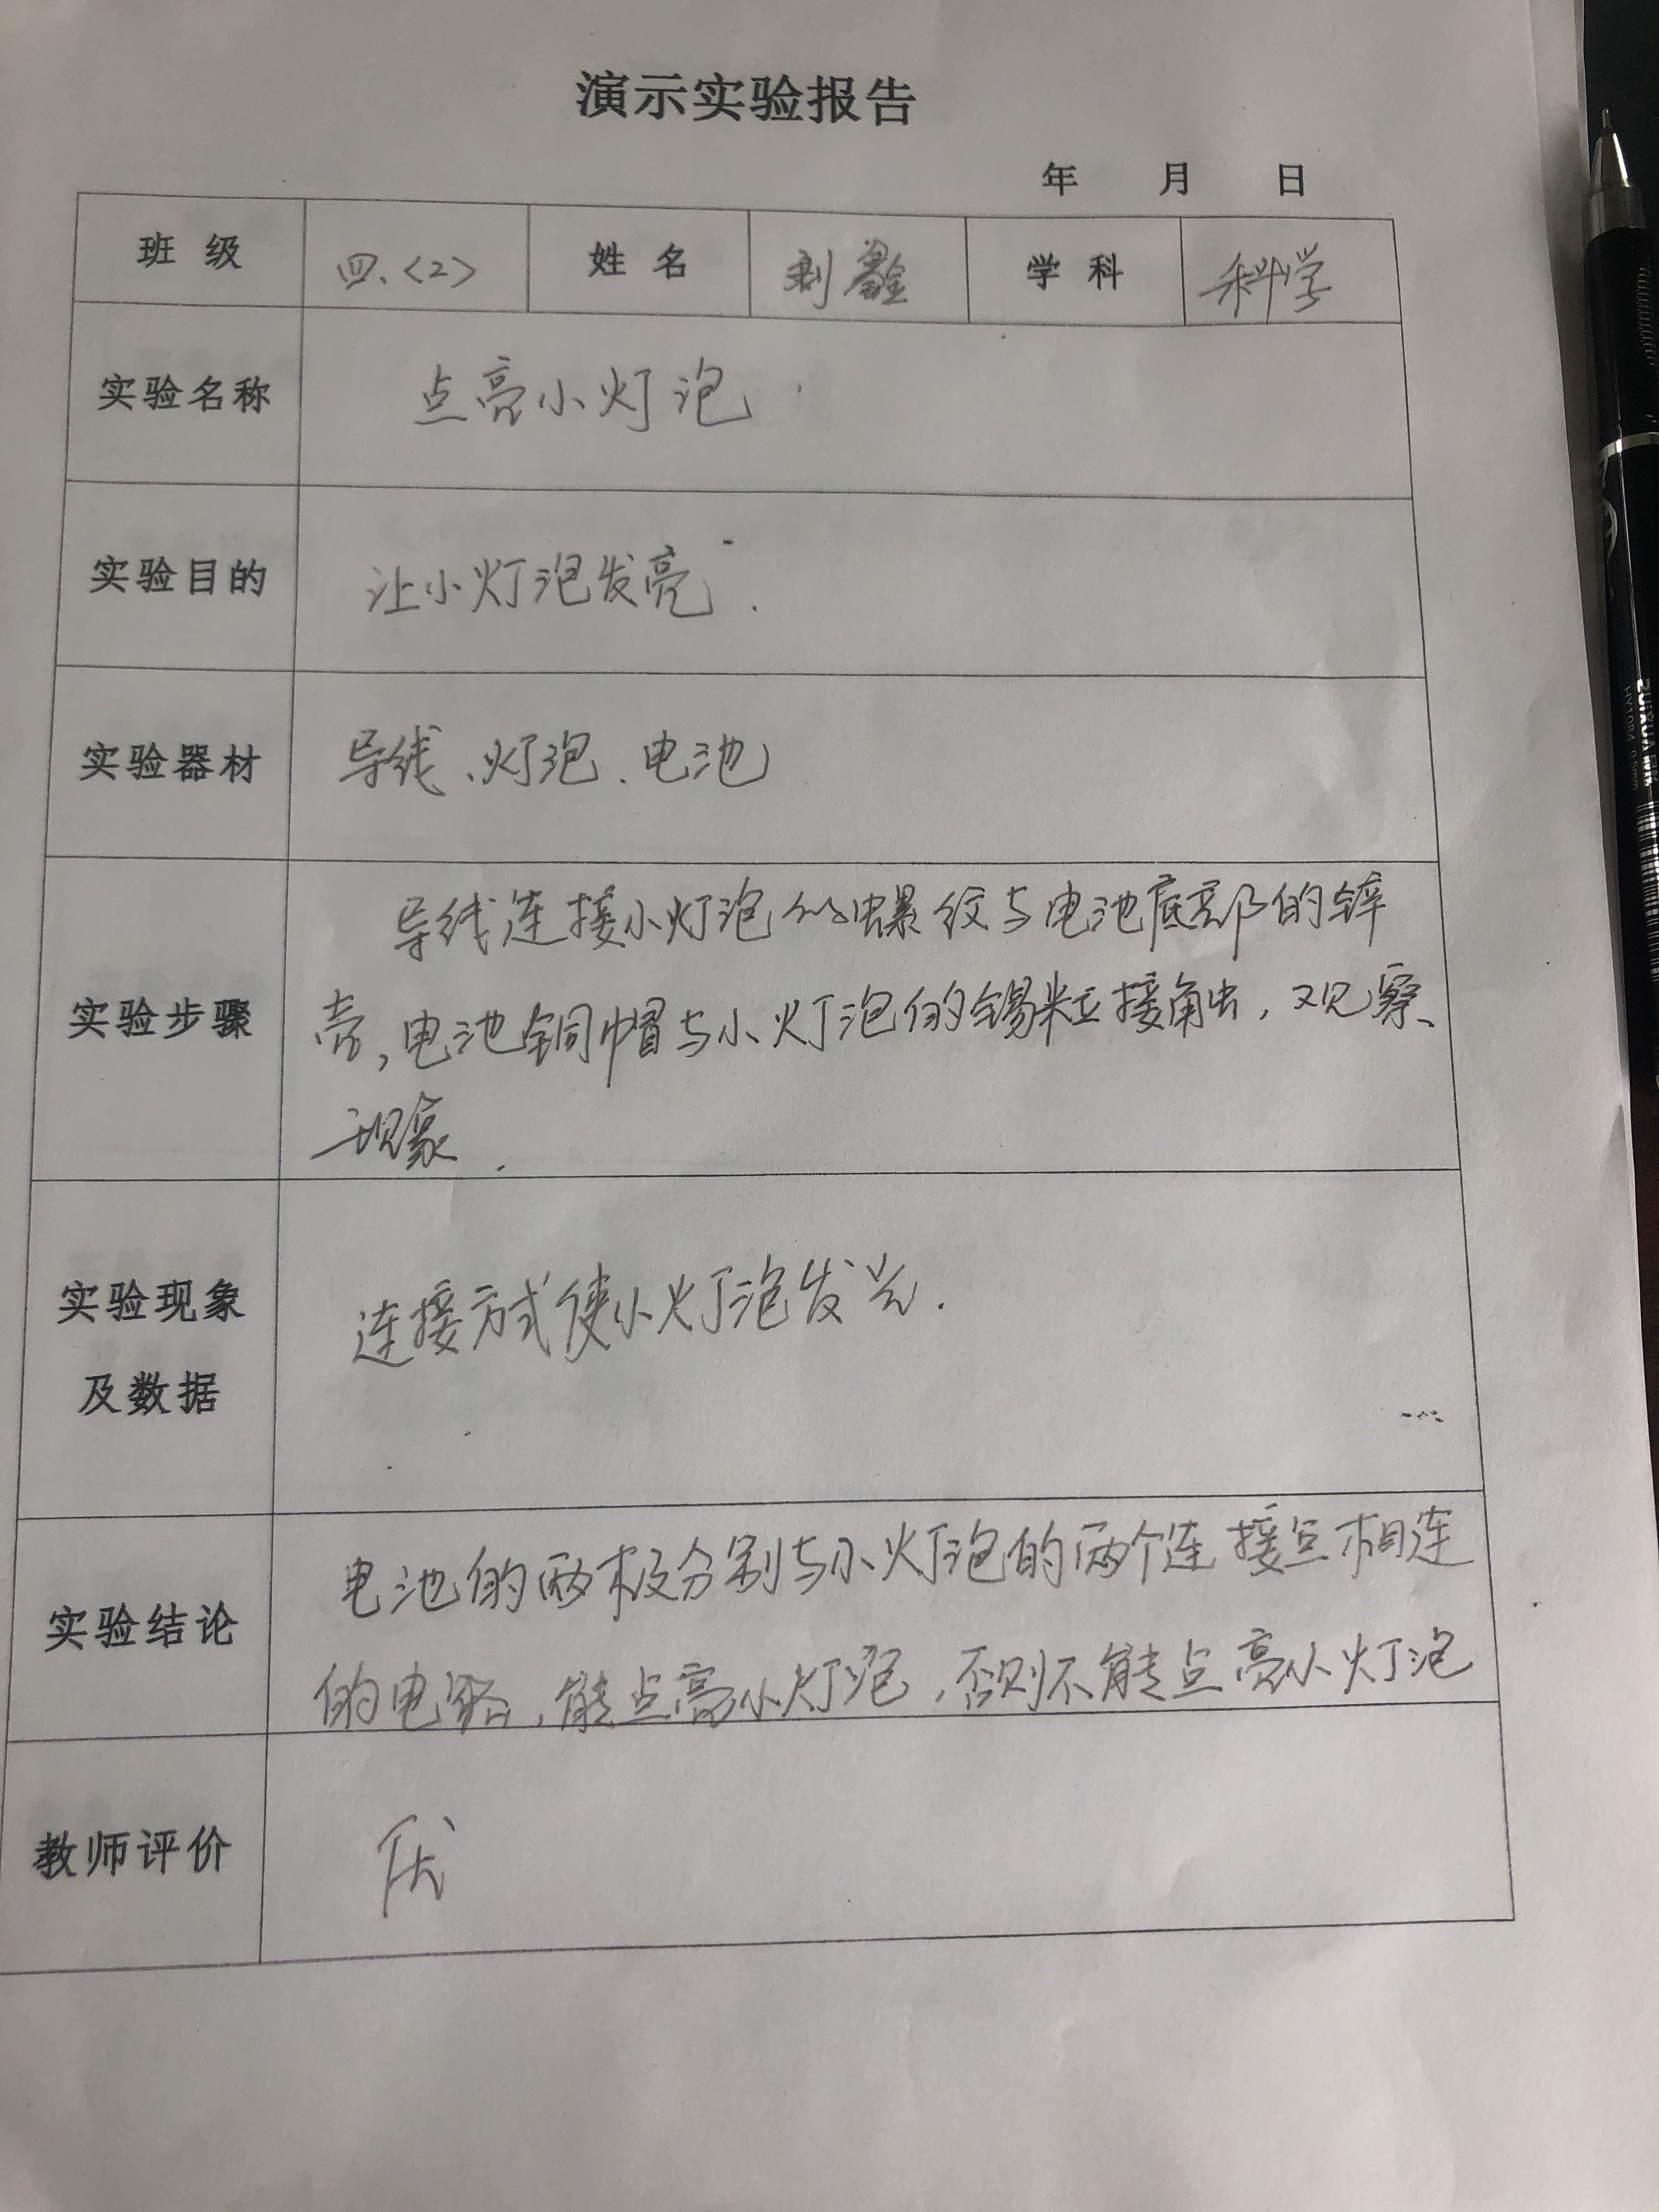 演示实验报告
年 月 日
班级 四、<2> 姓名 刘鑫 学科 科学
实验名称 点亮小灯泡
实验目的 让小灯泡发亮.
实验器材 导线、灯泡、电池
导线连接小灯泡的螺纹与电池底部的锌
实验步骤 壳,电池铜帽与小灯泡的锡粒接触,观察
现象.
实验现象
及数据
连接方式使小灯泡发光.
实验结论
电池的两极分别与小灯泡的两个连接点相连
的电路,能点亮小灯泡,否则不能点亮小灯泡
教师评价 优
HY1084 0.5mm